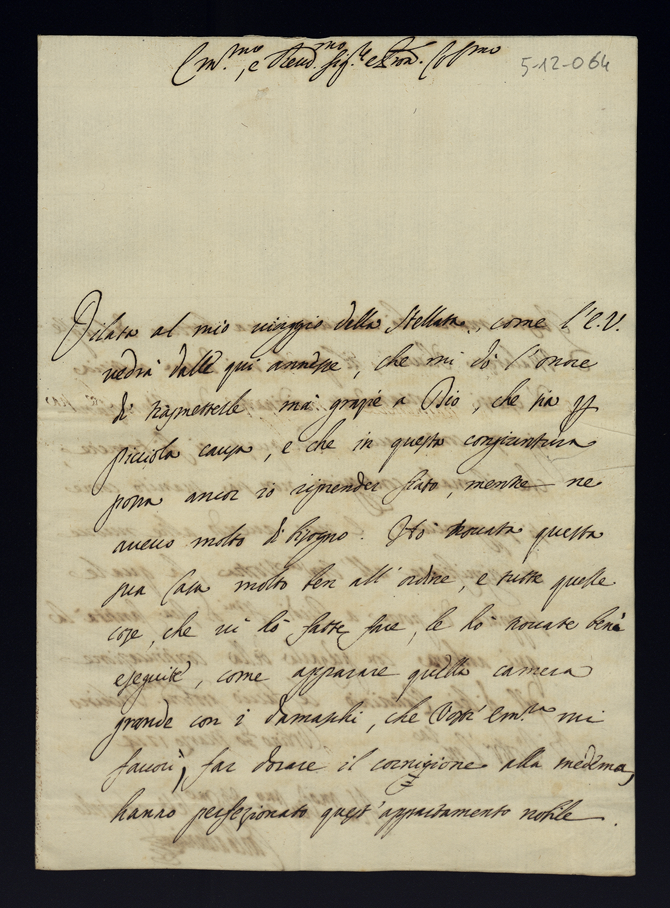 Em.mo, e Reud.mo Sig.re e Pron. Col.mo
5-12-064
Dilata al mio viaggio della Stellata, come l'E.V.
vedrà dalle qui annesse, che mi dò l'onore
di trasmetterle mà grazie a Dio, che sia p
picciola causa, e che in questa congiuntura
possa ancor io riprender fiato, mentre ne
aueuo molto di bisogno. Hò trouata questa
sua Casa molto ben all'ordine, e tutte quelle
cose, che ui hò fatte fare, le hò trouate bene
eseguite, come apparare quella camera
grande con i damaschi, che Vostr' Em.za mi
fauorì, far dorare il cornigione alla medema,
hanno perfezionato quest'appartamento nobile.